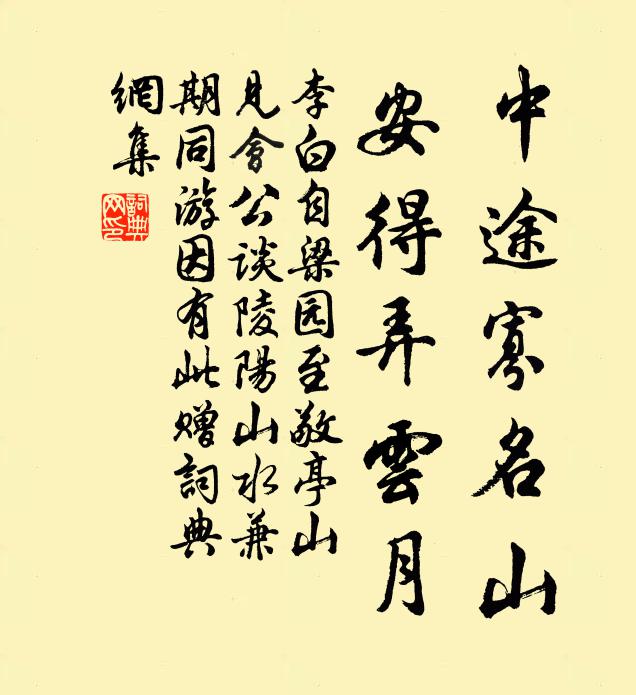 中途寡名山
安得弄雲月
李白自梁园至敬亭山
見會公談陵陽山水兼
期同游因有此赠詞典
網集
詞典網印